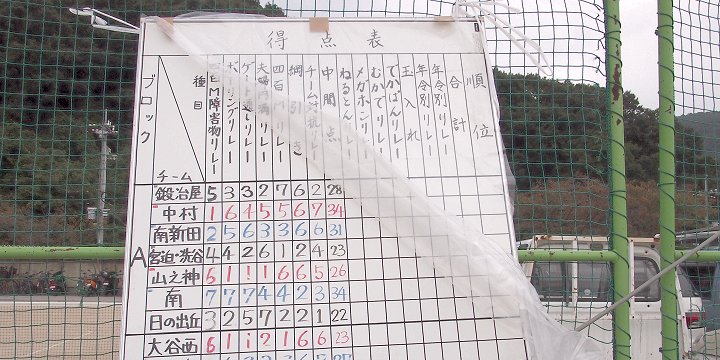 得点表
ブロック
種目
チーム
四百M障害物リレー
ボーリングリレー
四百Mリレー
綱引き
中間点
ねるとん
メガホンリレー
むかでリレー
でかぱんリレー
玉入れ
年令別リレー
年令別リレー
合計
順位
A
鍛冶屋 5 3 3 2 7 6 2 28
中村 1 6 4 5 5 6 7 34
南新田 2 5 6 3 3 6 6 31
宮迫・洗谷 4 4 2 6 1 2 4 23
山之神 6 1 1 1 6 6 5 26
南 7 7 7 4 4 2 3 34
日の出丘 3 2 5 7 2 2 1 22
大谷西 6 1 1 2 1 6 6 23